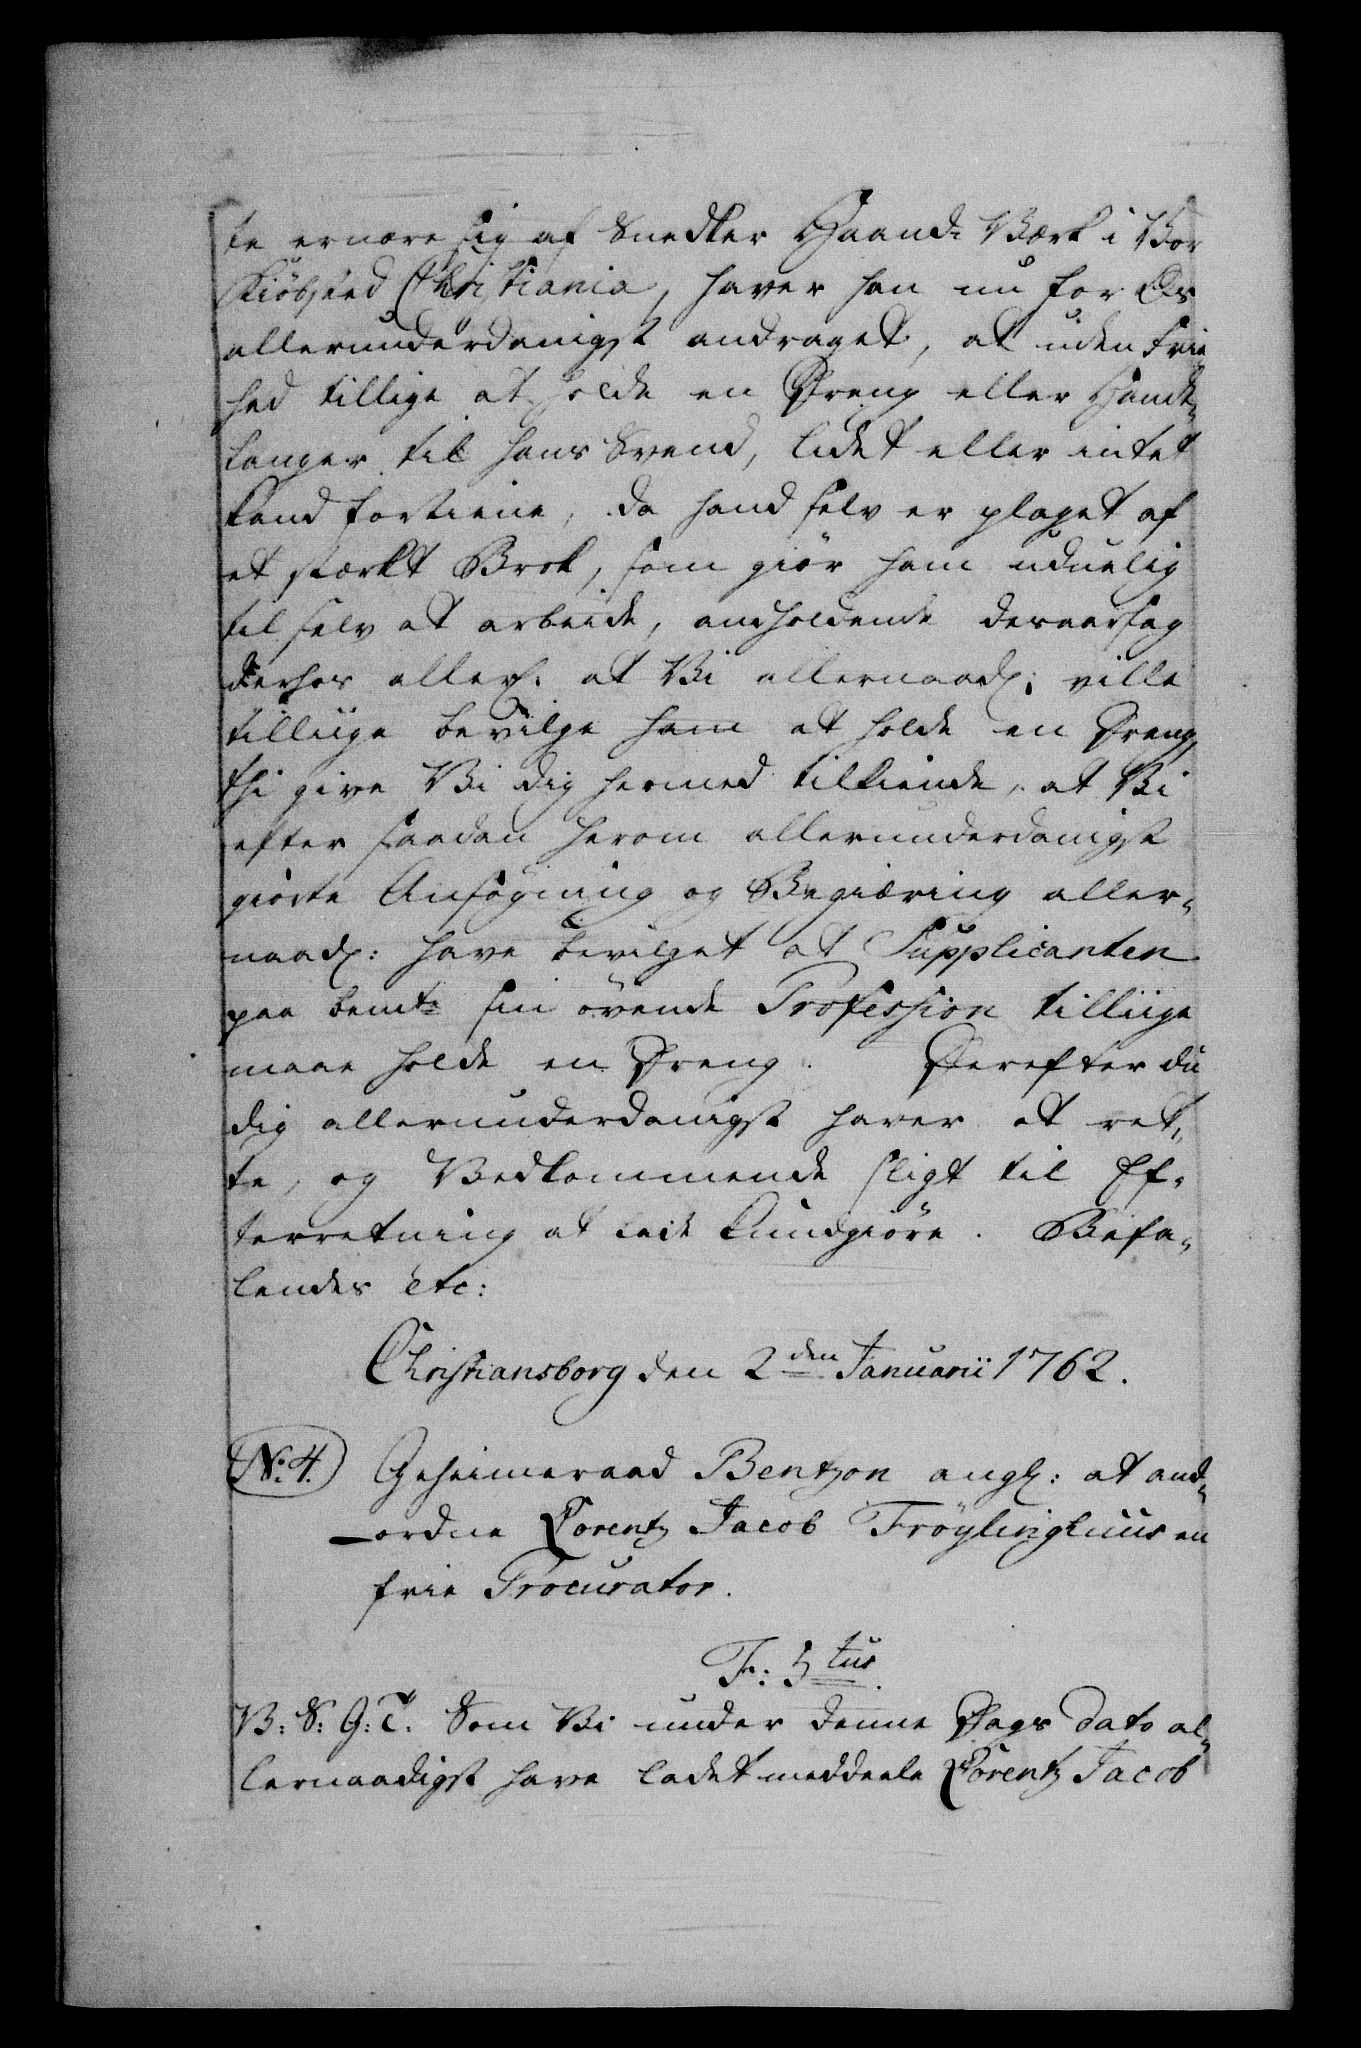 te ernære sig af Snedker Haand-Værk i Vor
Kiöbsted Christiania, haver han nu for Os
allerunderdanigst andraget, at uden Frie
hed tillige at holde en Dreng eller Hand-
langer til hans Svend, lidet eller intet
kand fortiene, da hand selv er plaget af
et stærkt Brok, som giör ham uduelig
til selv at arbeide, anholdende desaarsag
derhos allerh: at Vi allernaad: ville
tilliige bevilge ham at holde en Dreng,
thi give Vi dig hermed tilkiende, at Vi
efter saadan herom allerunderdanigst
giorte Ansögning og Begiæring aller-
naad: have bevilget at Supplicanten
paa bemte sin övende Profession tilliige
maae holde en Dreng. Derefter du
dig allerunderdanigst haver at ret-
te, og Vedkommende sligt til Ef-
terretning at lade kundgiöre. Befa-
lendes etc:
Christiansborg den 2den Januarii 1762.
No: 4. Geheimeraad Bentzon angl: at and-
ordne Lorentz Jacob Fröylinghuus en
frie Procurator.
F: 5tus.
V: S: G: T: Som Vi under denne Dags Dato al-
lernaadigst have ladet meddeele Lorentz Jacob